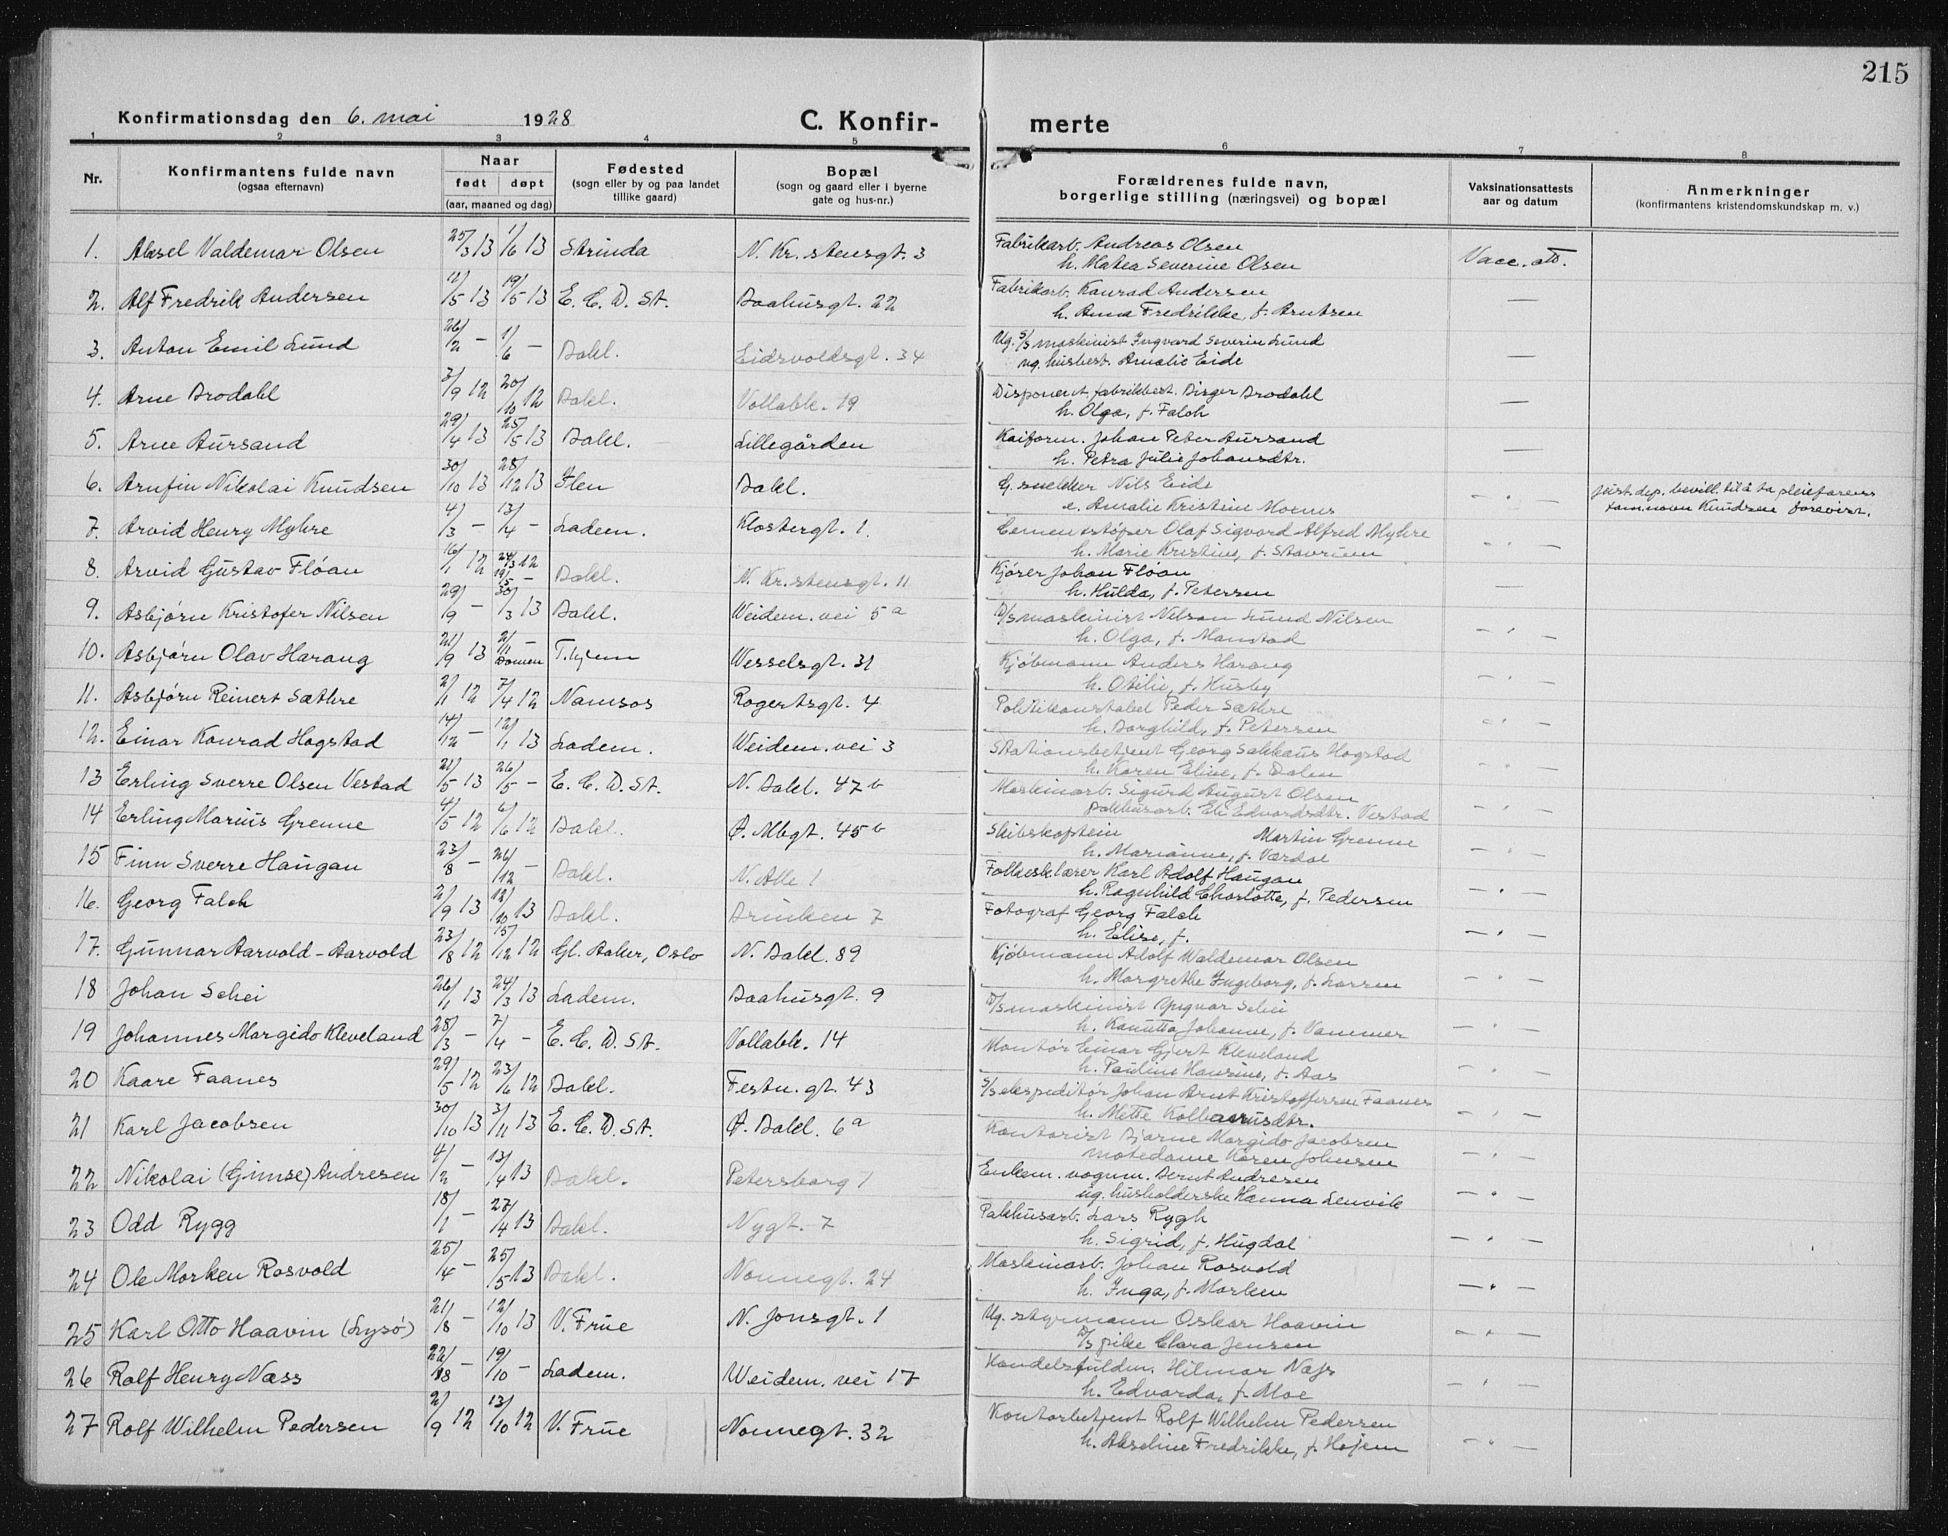 215
Konfirmationsdag den 6. mai 1928 C. Konfir- merte
1 2 3 4 5 6 7 8
Nr. Konfirmantens fulde navn (ogsaa efternavn) Naar født døpt (aar, maaned og dag) Fødested (sogn eller by og paa landet tillike gaard) Bopæl (sogn og gaard eller i byerne gate og hus-nr.) Forældrenes fulde navn, borgerlige stilling (næringsvei) og bopæl Vaksinationsattests aar og datum Anmerkninger (konfirmantens kristendomskundskap m. v.)
1. Aksel Valdemar Olsen 25/3 13 1/6 13 Strinda N. Kristensgt. 3 Fabrikarb. Andreas Olsen
h. Matea Severine Olsen Vacc. att.
2. Alf Fredrik Andersen 11/5 13 19/5 13 E. C. D. St. Baahusgt. 22 Fabrikarb. Konrad Andersen
h. Anna Fredrikke, f. Arntsen —
3. Anton Emil Lund 26/2 — 1/6 — Bakl. Eidsvoldsgt. 34 Ug. s/s maskinist Ingvard Severin Lund
ug. husbest. Amalie Eide —
4. Arne Brodahl 3/9 12 20/10 12 Bakl. Vollabk. 19 Disponent, fabrikbest. Birger Brodahl
h. Olga, f. Falch —
5. Arne Aursand 29/4 13 25/5 13 Bakl. Lillegården Kaiform. Johan Peter Aursand
h. Petra Julie Johansdtr. —
6. Arnfin Nikolai Knudsen 30/10 13 28/12 13 Ilen Bakl. G. snekker Nils Eide
e. Amalie Kristine Moenes — " — just. dep. bevill. til å ta pleiefarens
fam.navn Knudsen forevist.
7. Arvid Henry Myhre 4/3 — 13/4 — Ladem. Klostergt. 1. Cementstøper Olaf Sigvard Alfred Myhre
h. Marie Kristine, f. Stavrum — " —
8. Arvid Gustav Fløan 16/1 12 24/3 12 19/5 — Bakl. N. Kristensgt. 11 Kjører Johan Fløan
h. Hulda, f. Petersen —
9. Asbjørn Kristofer Nilsen 29/9 — 30/3 13 Bakl. Weidem. vei 5a D/s maskinist Nelson Lund Nilsen
h. Olga, f. Manstad — " —
10. Asbjørn Olav Harang 21/9 13 2/11 — Domen T.hjem Wesselsgt. 31 Kjøbmann Anders Harang
h. Otilie, f. Husby — " —
11. Asbjørn Reinert Sæthre 2/1 12 7/4 12 Namsos Rogertsgt. 4 Politikonstabel Peder Sæthre
h. Borghild, f. Petersen — " —
12. Einar Konrad Hogstad 14/12 — 12/1 13 Ladem. Weidem. vei 3 Stationsbetjent Georg Sakkæus Hogstad
h. Karen Elise, f. Dalen — " —
13 Erling Sverre Olsen Vestad 21/5 13 26/5 — E. C. D. St. N. Bakl. 47b Maskinarb. Sigurd August Olsen
pakhusarb. Eli Edvardsdtr. Vestad — " —
14 Erling Marius Grenne 4/5 12 6/6 12 Bakl. Ø. Mbgt. 45b Skibskaptein Martin Grenne
h. Marianne, f. Værdal — " —
15 Finn Sverre Haugan 23/8 — 26/12 — Bakl. N. Alle 1 Folkesk.lærer Karl Adolf Haugan
h. Ragnhild Charlotte, f. Pedersen — " —
16. Georg Falch 2/9 13 12/10 13 Bakl. Brinken 7 Fotograf Georg Falch
h. Elise, f. — " —
17. Gunnar Aarvold-Aarvold 23/8 12 15/12 12 Gl. Aaker, Oslo N. Bakl. 89 Kjøbmann Adolf Waldemar Olsen
h. Margrethe Ingeborg, f. Larsen — " —
18 Johan Schei 26/1 13 24/3 13 Ladem. Baahusgt. 9 D/s maskinist Yngvar Schei
h. Kanutta Johanne, f. Vammer — " —
19 Johannes Margido Kleveland 28/3 — 7/4 — E. C. D. St. Vollabk. 14 Montør Einar Gjert Kleveland
h. Pauline Hansine, f. Aas — " —
20 Kaare Faanes 29/5 12 23/6 12 Bakl. Festn. gt. 43 S/s ekspeditør Johan Arnt Kristoffersen Faanes
h. Mette Kolbanusdtr. — " —
21 Karl Jacobsen 30/10 13 3/11 13 E. C. D. St. Ø. Bakl. 6a Kontorist Bjarne Margido Jacobsen
motedame Karen Johnsen — " —
22 Nikolai (Gimse) Andresen 4/2 — 13/4 13 Bakl. Petersborg 1 Enkem. vognm. Bernt Andresen
ug. husholderske Hanna Lenvik — " —
23 Odd Rygg 18/1 — 27/4 13 Bakl. Nygt. 7 Pakhusarb. Lars Rygh
h. Sigrid, f. Hugdal — " —
24 Ole Morken Rosvold 25/4 — 25/5 13 Bakl. Nonnegt. 24 Maskinarb. Johan Rosvold
h. Inga, f. Morken — " —
25 Karl Otto Haavin (Lysø) 21/8 — 12/10 13 V. Frue N. Jonsgt. 1 Ug. styrmann Oskar Haavin
D/s pike Clara Jensen — " —
26 Rolf Henry Næss 22/8 — 19/10 — Ladem. Weidem. vei 17 Handelsfuldm. Hilmar Næss
h. Edvarda, f. Moe — " —
27 Rolf Wilhelm Pedersen 2/9 12 13/10 12 V. Frue Nonnegt. 32 Kontorbetjent Rolf Wilhelm Pedersen
h. Akseline Fredrikke, f. Højem — " —